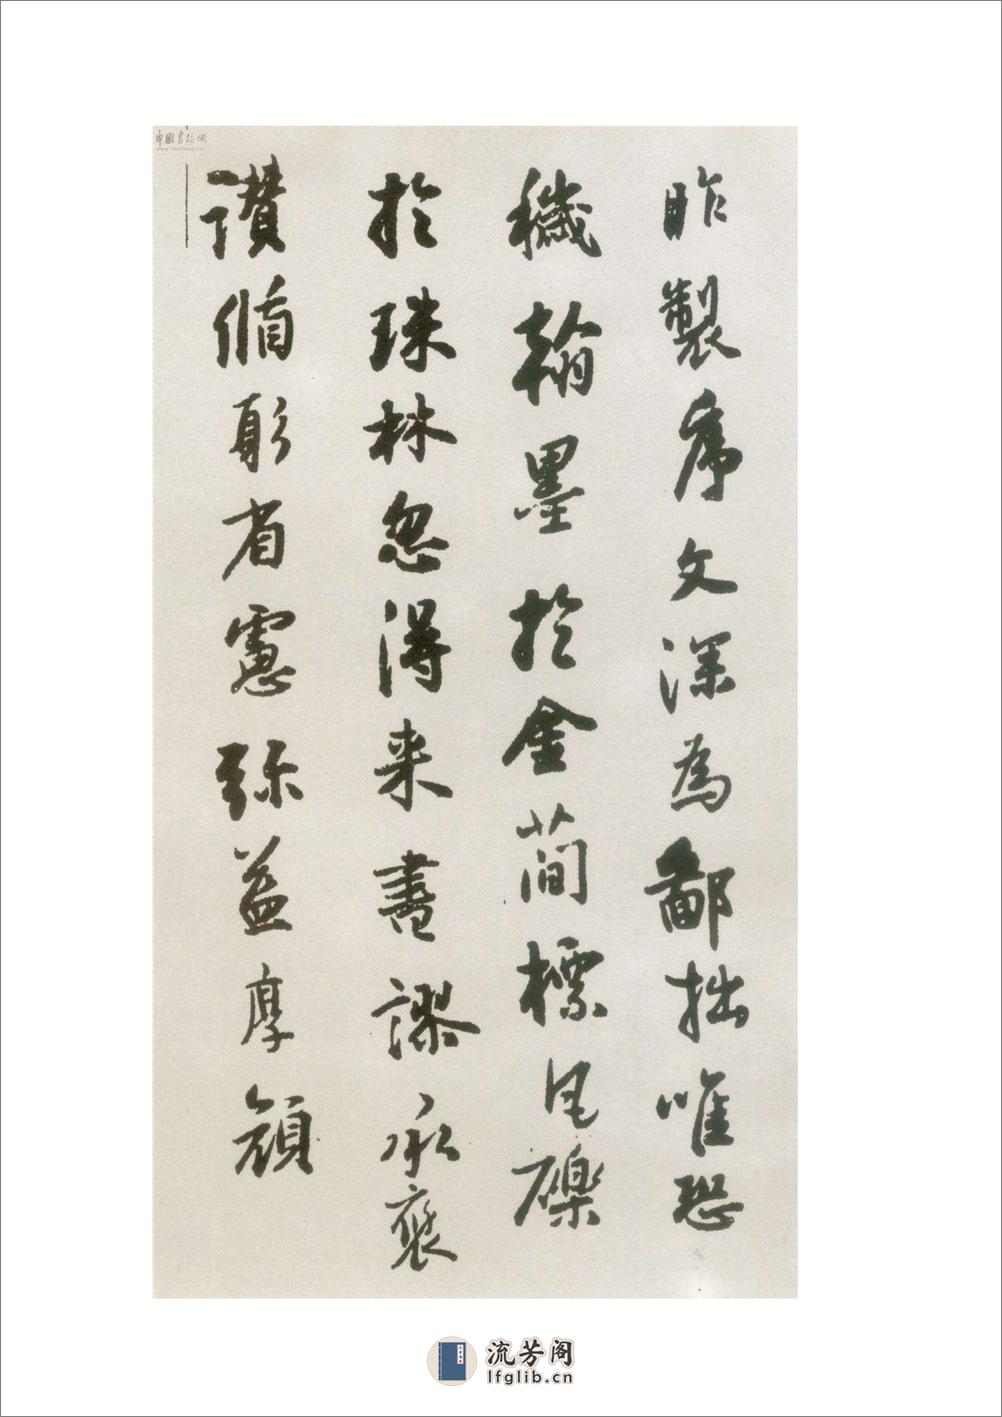 昨製序文深為鄙拙唯恐
穢翰墨於金簡標瓦礫
於珠林忽得来書謬承褒
讃循躬省慮弥益厚顔
中國書法網
流芳阁
lfglib.cn